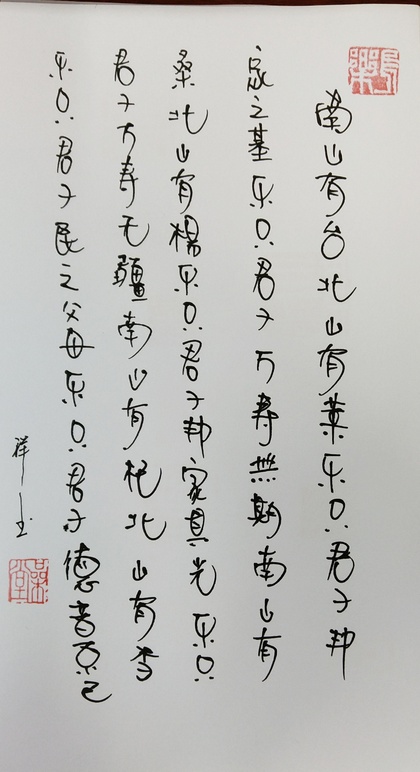 南山有台北山有莱乐只君子邦
家之基乐只君子万寿無期南山有
桑北山有楊乐只君子邦家具光乐只
君子万寿无疆南山有杞北山有李
乐只君子民之父母乐只君子德音不已
祥玉